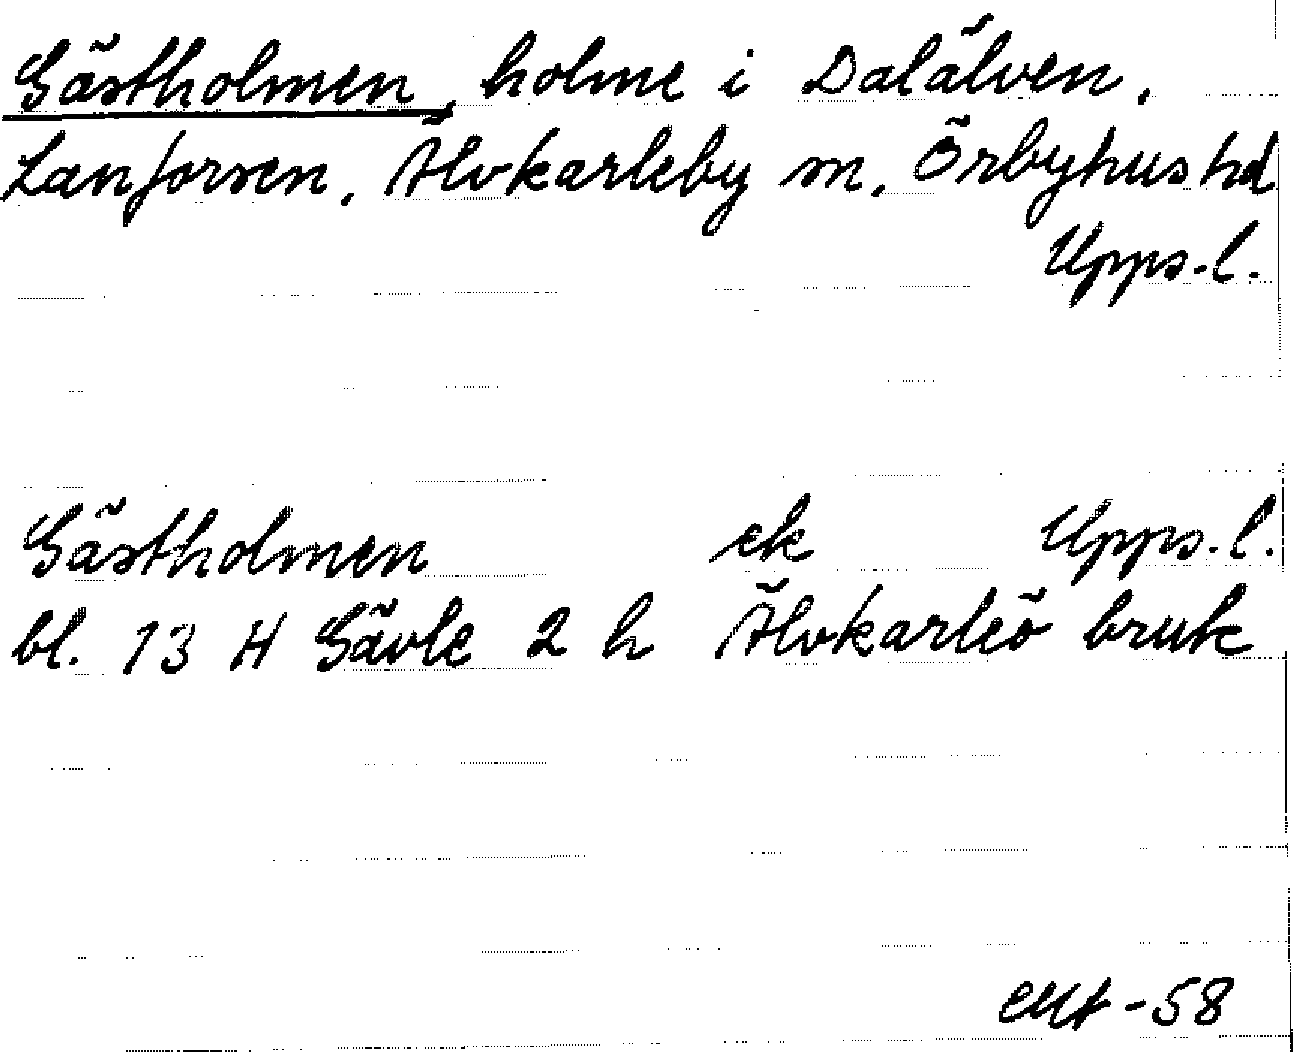 Gästholmen, holme i Dalälven,
Lanforsen, Älvkarleby sn, Örbyhus hd
Upps. l.
Gästholmen ek Upps. l.
bl. 13 H Gävle 2 h Älvkarleö bruk
-58